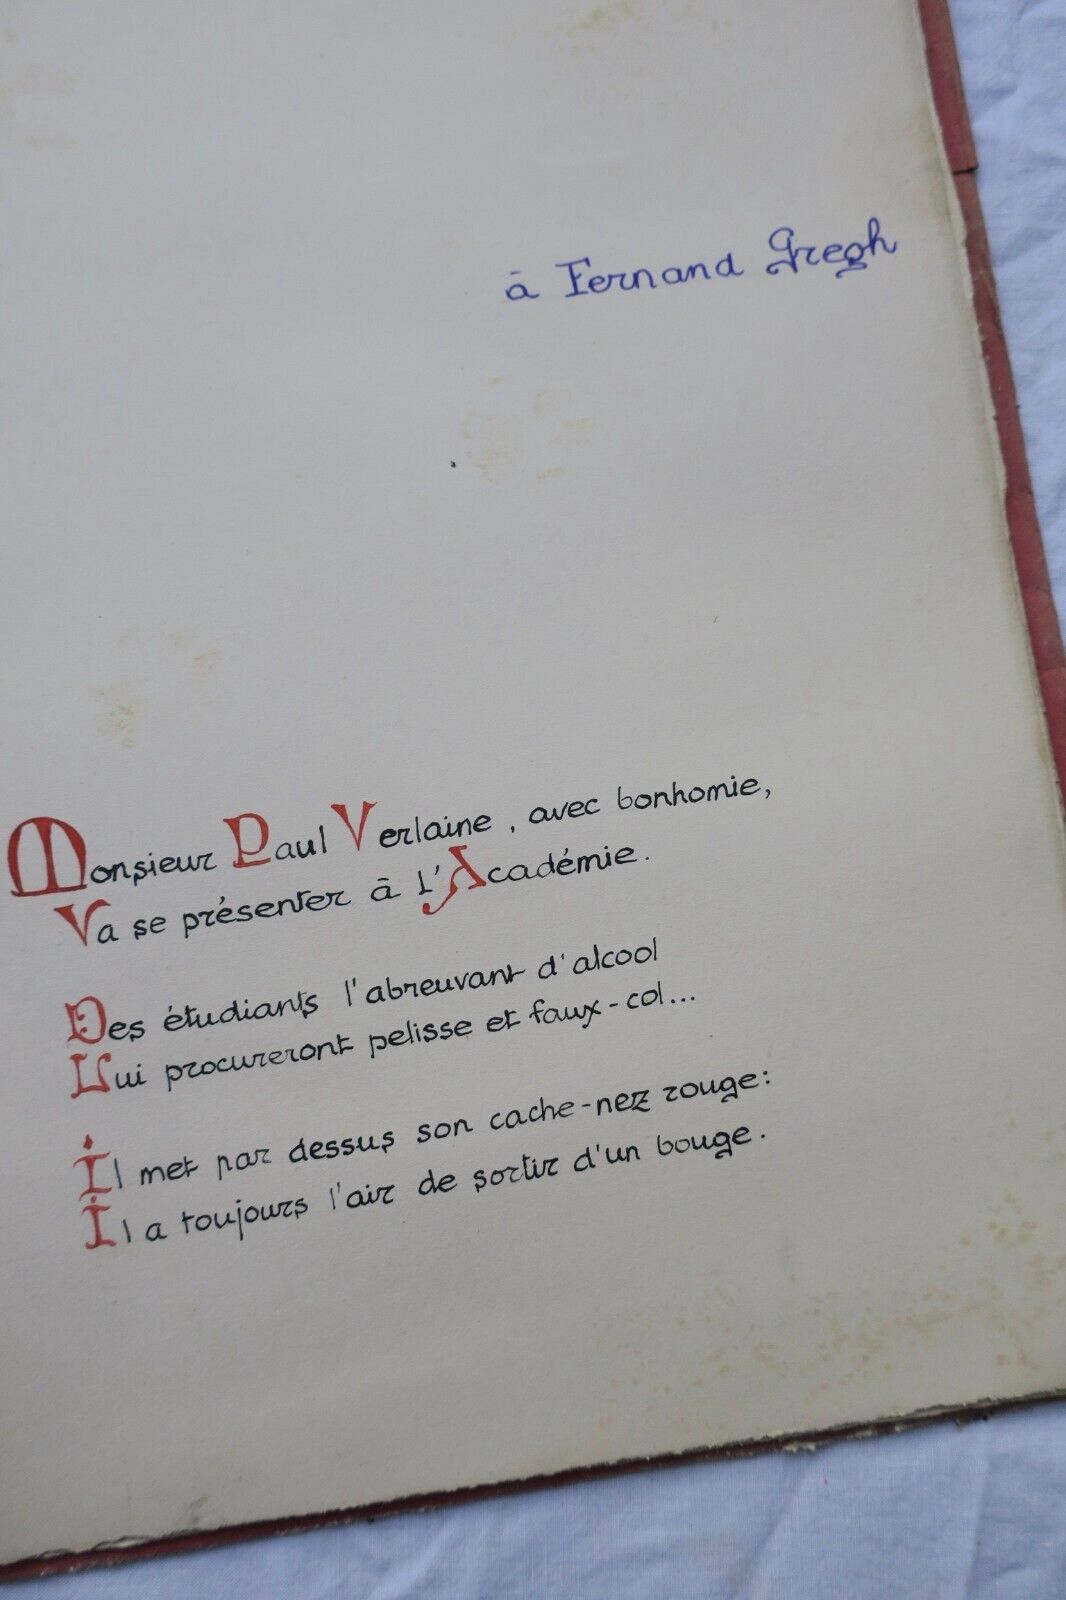 à Fernand Gregh
Monsieur Paul Verlaine, avec bonhomie,
Va se présenter à l'Académie.
Des étudiants l'abreuvant d'alcool
Lui procureront pelisse et faux-col...
Il met par dessus son cache-nez rouge:
Il a toujours l'air de sortir d'un bouge.